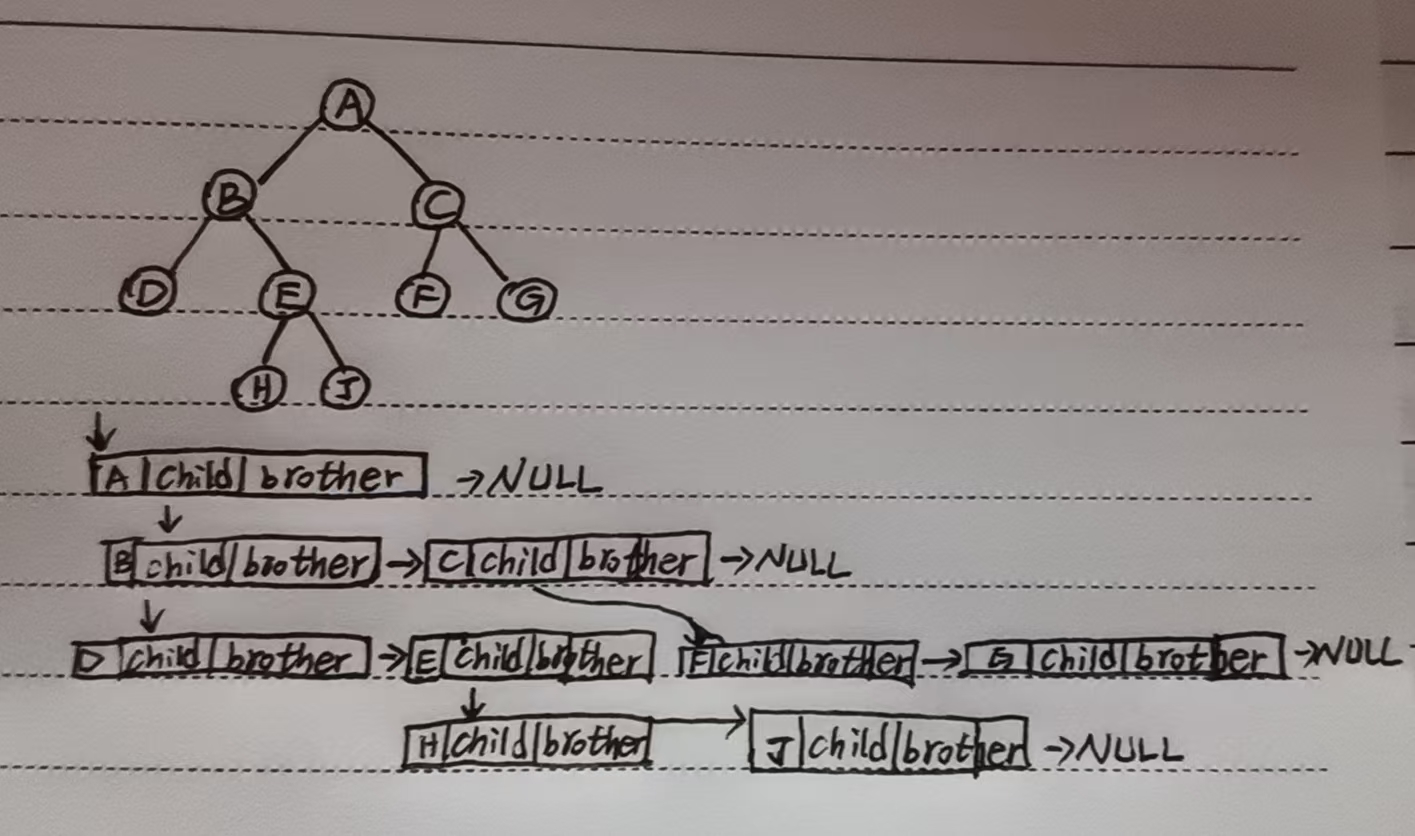 A
B C
D E F G
H J
A child brother →NULL
B child brother → C child brother →NULL
D child brother → E child brother F child brother → G child brother →NULL
H child brother → J child brother →NULL